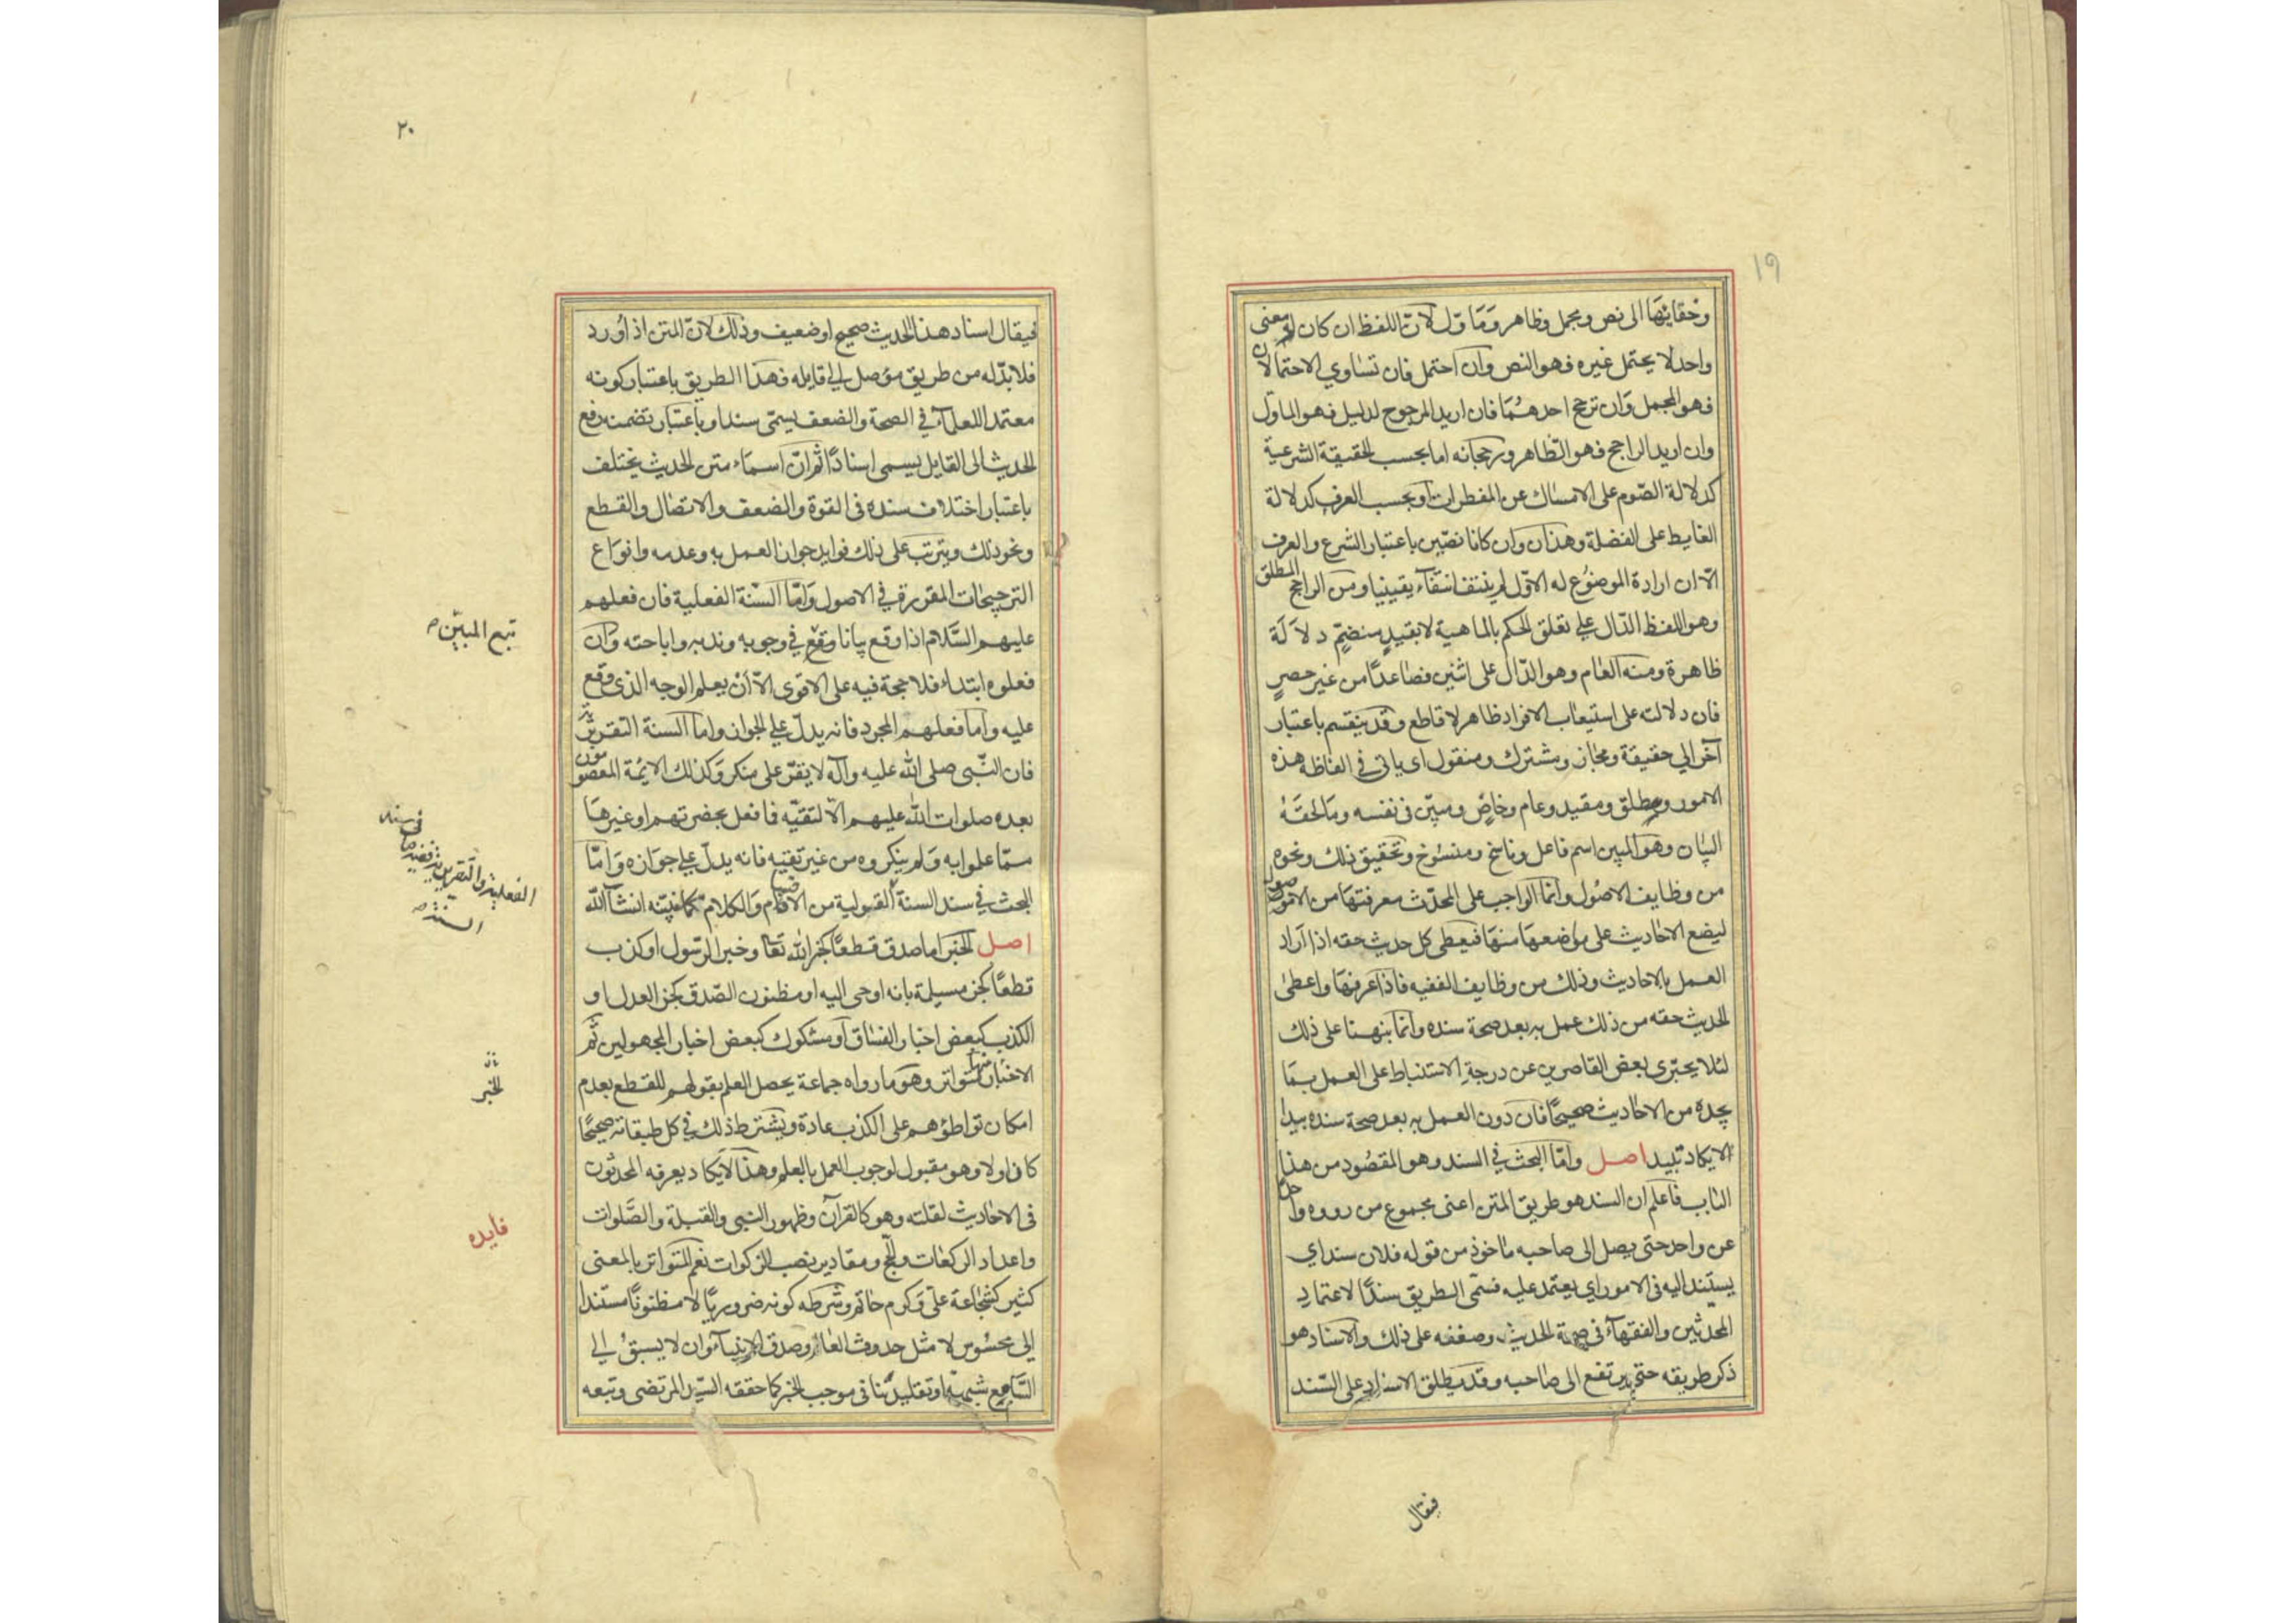 ١٩
وحقايقها الى نص ومجمل وظاهر ومَاوّل لانّ اللفظ ان كان له معنى
واحد لا يحتمل غيره فهو النص وان احتمل فان تساوي الاحتمالان
فهو المجمل وَان ترجح احدهُمَا فان اريد المرجوح لدليل فهو الماوّل
وان اريد الراجح فهو الظّاهر ورجحانه اما بحسب الحقيقة الشرعية
كدلالة الصّوم على الامساك عن المفطرات او بحسب العرف كدلالة
الغايط على الفضلة وهذان وان كانا نصّين باعتبار الشرع والعرف
الّا ان ارادة الموضوُع له الاوّل لم ينتف انتفآء يقينيا ومن الراجح المطلق
وهو اللفظ الدّال علي تعلق الحكم بالماهية لا بقيدٍ منضمٍّ دلاَلَة
ظاهرة ومنه العام وهو الدّال على اثنين فصاعدًا من غير حصرٍ
فان دلالته على استيعاب الافراد ظاهر لا قاطع وقد ينقسم باعتبار
آخر الي حقيقة ومجاز ومشترك ومنقول اى ياتى في الفاظه هذه
الامور ومطلق ومقيد وعام وخاصٍّ ومبيّن فى نفسه ومَا لحقَهُ
البيان وهو المبين اسم فاعل وناسخ ومنسُوخ وتحقيق ذلك ونحوه
من وظايف الاصُول وانما الواجب على المحدّث معرفتهَا من الاصول
ليضع الاحَاديث على مواضعهَا منهَا فيعطى كل حديث حقه اذا اَراد
العمل بالاحاديث وذلك من وظايف الفقيه فاذا عرفهَا واعطىٰ
الحديث حقه من ذلك عمل به بعد صحة سنده وانما نبهنا على ذلك
لئلا يجترى بعض القاصرين عن درجةِ الاستنباط على العمل بمَا
يجده من الاحَاديث صحيحًا فان دون العمل به بعد صحة سنده بيدا
لا يكاد تبيد اصل وامّا البحث في السند وهو المقصُود من هذا
الباب فاعلم ان السند هو طريق المتن اعنى مجموع من رووه واحد
عن واحد حتى يصل الى صاحبه مَاخوذ من قوله فلان سند اي
يستند اليه فى الامور اي يعتمد عليه فسمّى الطريق سندًا لاعتمادِ
المحدثين والفقهآء فى صحة الحديث وضعفه على ذلك والاسناد هو
ذكر طريقه حتى يرتفع الى صَاحبه وقد يطلق الاسناد على السّند
فيقال
٢٠
فيقال اسناد هذا الحديث صحيح او ضعيف وذلك لانّ المتن اذا وُرد
فلا بدّ له من طريق مُوصل الي قايله فهذا الطريق باعتبار كونه
معتمد اللعلمآء في الصحة والضعف يسمّى سندا وباعتبار تضمنه رفع
الحديث الى القايل يسمى اسنادًا ثم انّ اسمَاء متن الحديث يختلف
باعتبار اختلاف سنده فى القوة والضعف والاتصَال والقطع
ونحو ذلك ويترتب على ذلك فوايد جواز العمل به وعدمه وانوَاع
الترجيحات المقررة في الاصول وَامّا السّنة الفعلية فان فعلهم
عليهم السَّلام اذا وقع بيانا وقع في وجوبه وندبه واباحته وَان
فعلوه ابتداء فلا حجة فيه على الاقوى الّا اَنْ يعلم الوجه الذى وقع
عليه واما فعلهم المجرد فانه يدلّ علي الجواز واما السنة التقريريّة
فان النّبى صلى الله عليه وآله لا يقرّ على منكر وكذلك الايُمة المعصومون
بعده صلوات الله عليهم الّا لتقيّه فما فعل بحضرتهم او غيرهَا
ممّا علموا به وَلم ينكروه من غير تقيّه فانه يدلّ علي جوَازه وَامّا
البحث في سند السنة القولية من الاقسَام وَالكلام كما نبيّنه انشآء الله
اصل الخبر اما صدق قطعًا كخبر الله تعَا وخبر الرّسول او كذب
قطعًا كخبر مسيلمة بانه اوحى اليه او مظنون الصّدق كخبر العدل او
الكذب كبعض اخبار الفسَاق او مشكوك كبعض اخبار المجهولين ثمّ
الاخبار منها متواتر وهو مَا رواه جماعة يحصل العلم بقولهم للقطع بعدم
امكان تواطؤهم على الكذب عادة ويشترط ذلك في كل طبقاته صحيحًا
كان او لا وهو مقبول لوجوب العمل بالعلم وهذا لَا يكاد يعرفه المحدّثون
فى الاحَاديث لقلته وهو كالقرآن وظهور النبى والقبلة والصَّلوات
واعداد الركعَات والحج ومقادير نصب الزكوات نعم المتواتر بالمعنى
كثير كشجَاعة علىّ وَكرم حاتم وشرطه كونه ضروريًّا لا مظنونًا مستندا
إلى محسُوس لا مثل حدوث العَالم وصدق الانبيآء وان لا يسبقُ الي
السَّامع شبهة او تقليد ينَافى موجب الخبر كما حققه السّيد المرتضى وتبعه
تبع المبيّن ص
فى سند
الفعلية والتقريرية
السنة ص
الخبر
فايده